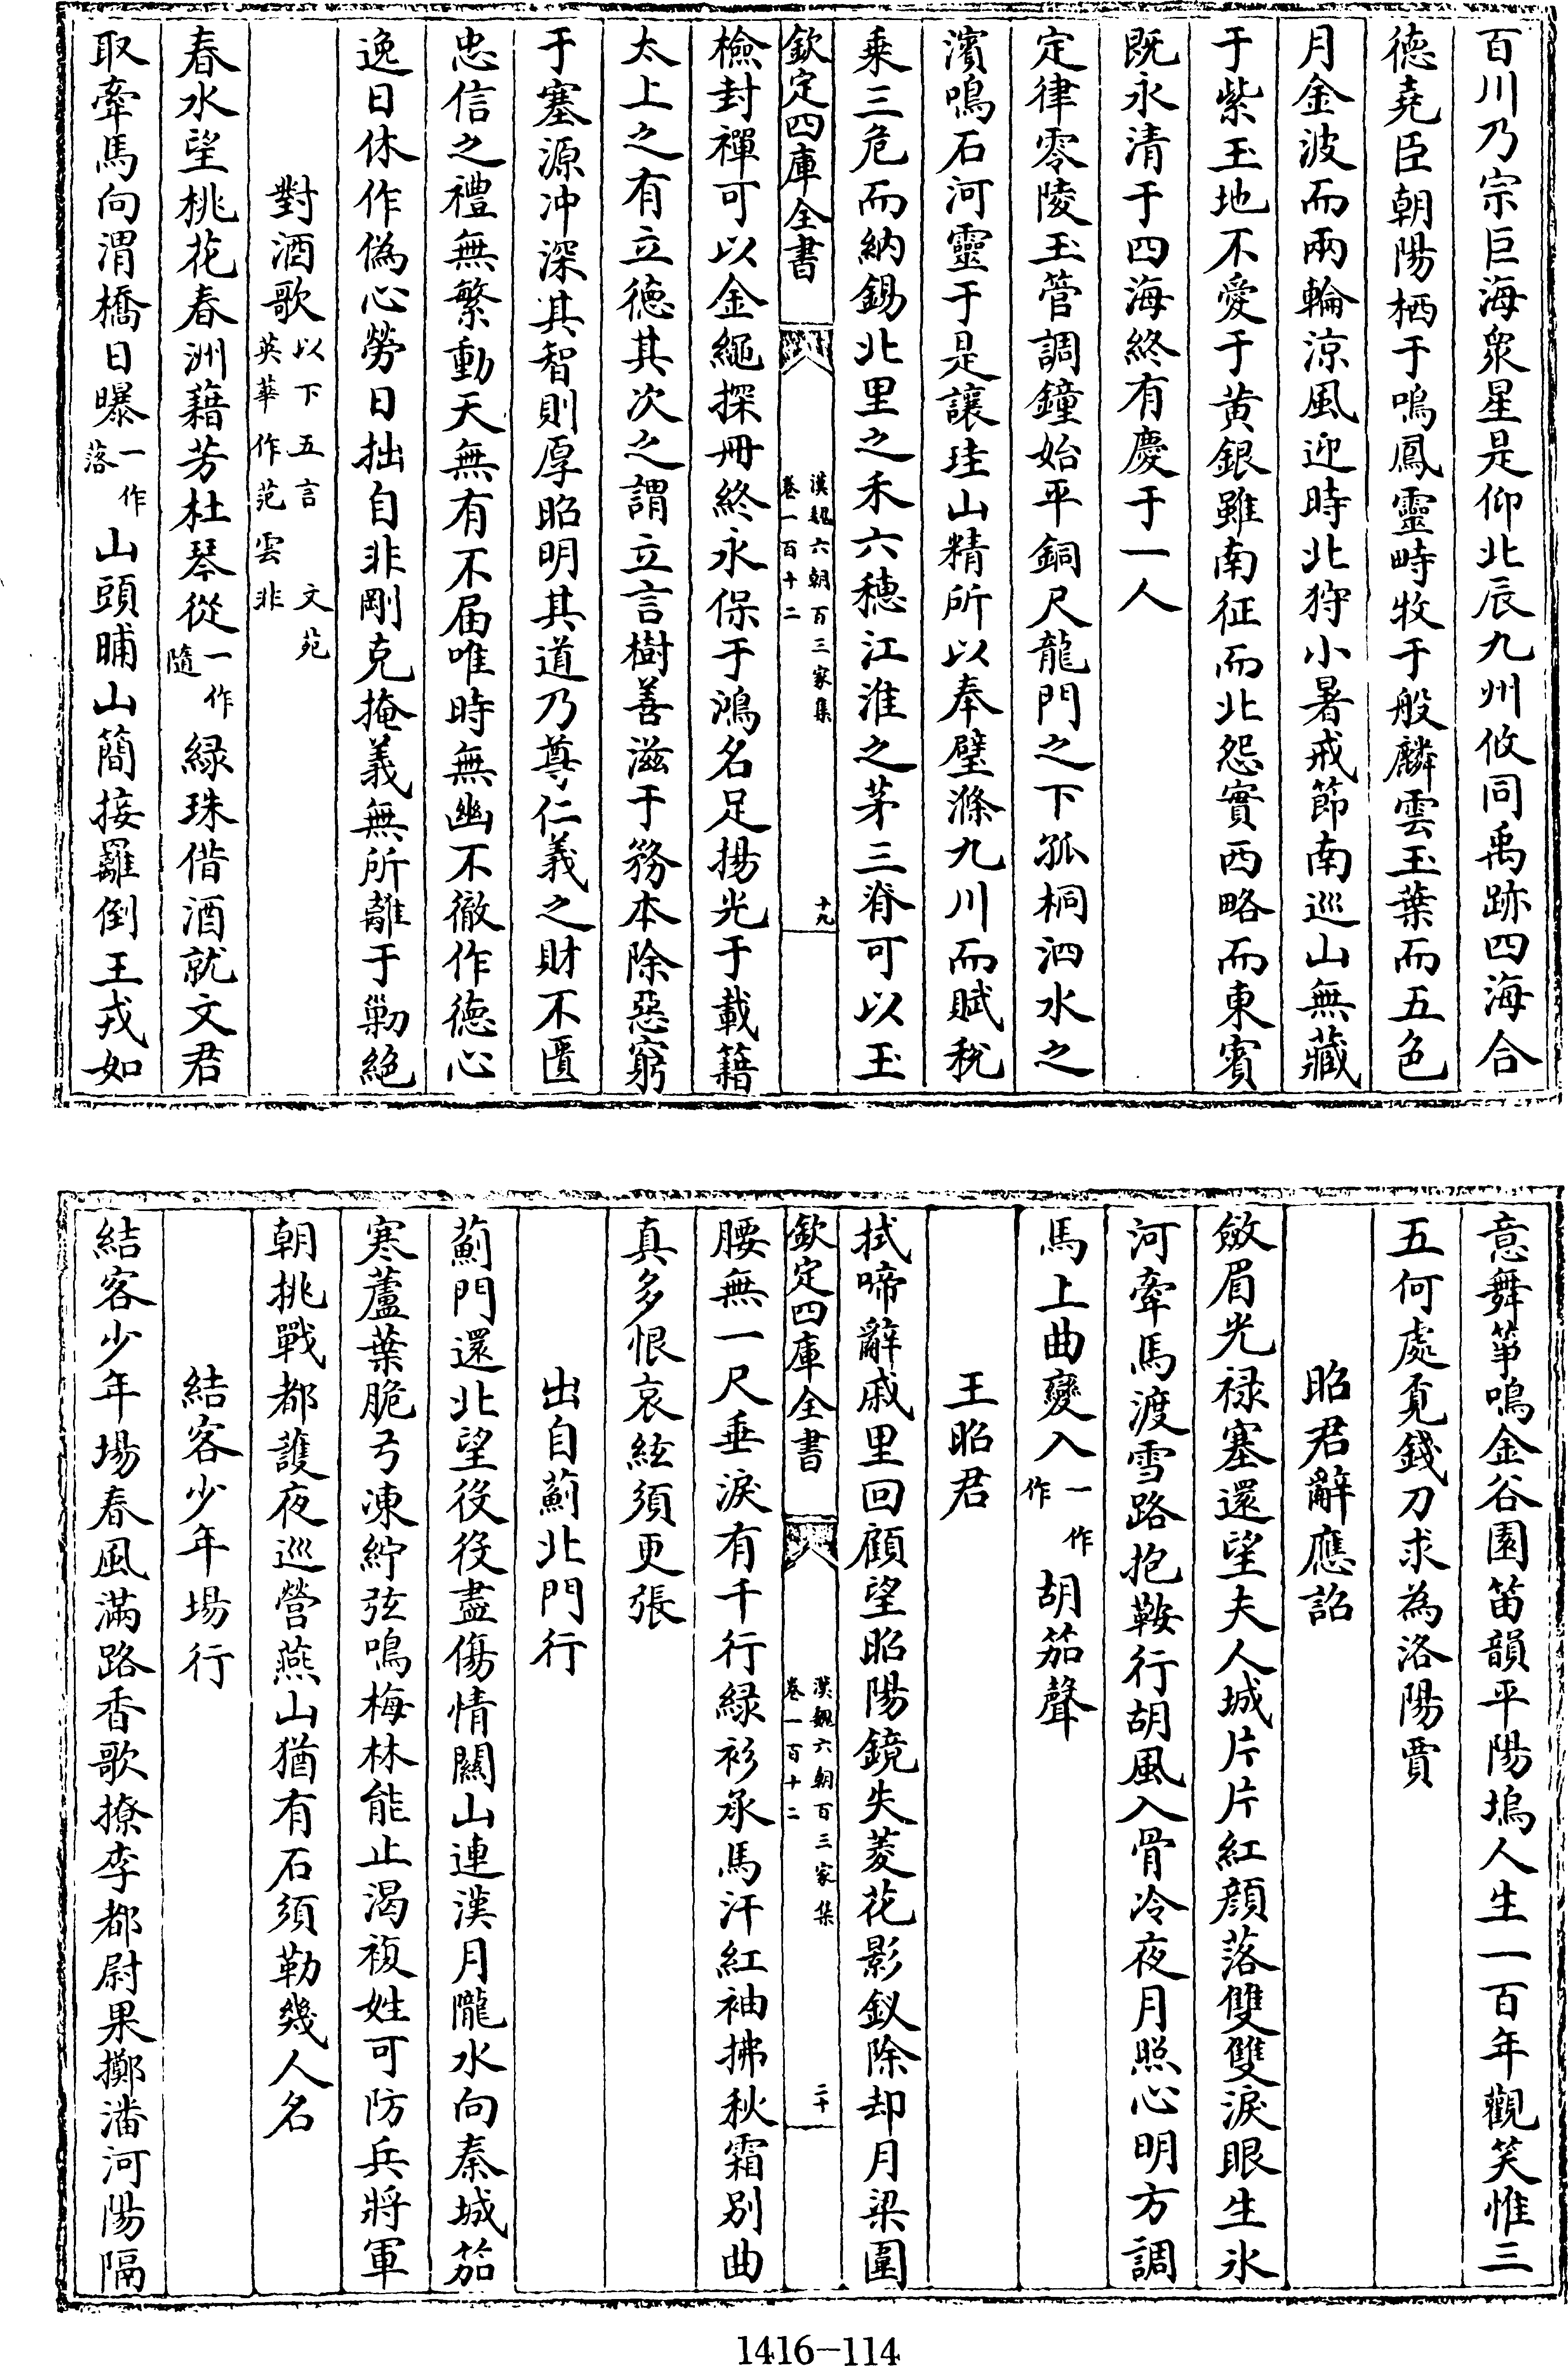 百川乃宗巨海衆星是仰北辰九州攸同禹跡四海合
德堯臣朝陽栖于鳴鳳靈畤牧于般麟雲玉葉而五色
月金波而兩輪涼風迎時北狩小暑戒節南巡山無藏
于紫玉地不愛于黄銀雖南征而北怨實西略而東賓
既永清于四海終有慶于一人
定律零陵玉管調鐘始平銅尺龍門之下孤桐泗水之
濱鳴石河靈于是讓珪山精所以奉璧滌九川而賦稅
乗三危而納錫北里之禾六穗江淮之茅三脊可以玉
欽定四庫全書
漢魏六朝百三家集
卷一百十二
十九
檢封禪可以金繩探冊終永保于鴻名足揚光于載籍
太上之有立德其次之謂立言樹善滋于務本除惡窮
于塞源冲深其智則厚昭明其道乃尊仁義之財不匱
忠信之禮無繁動天無有不届唯時無幽不徹作德心
逸日休作偽心勞日拙自非剛克掩義無所離于勦絕
對酒歌以下五言 文苑
英華作范雲非
春水望桃花春洲藉芳杜琴從一作隨緑珠借酒就文君
取牽馬向渭橋日曝一作落山頭晡山簡接䍦倒王戎如
意舞箏鳴金谷園笛韻平陽塢人生一百年觀笑惟三
五何處覓錢刀求為洛陽賈
昭君辭應詔
斂眉光禄塞還望夫人城片片紅顔落雙雙淚眼生氷
河牽馬渡雪路抱鞍行胡風入骨冷夜月照心明方調
馬上曲變入一作作胡笳聲
王昭君
拭啼辭戚里回顧望昭陽鏡失菱花影釵除却月梁圍
欽定四庫全書
漢魏六朝百三家集
卷一百十二
二十
腰無一尺垂淚有千行緑衫承馬汗紅袖拂秋霜别曲
真多恨哀絃須更張
出自薊北門行
薊門還北望役役盡傷情關山連漢月隴水向秦城笳
寒蘆葉脆弓凍紵弦鳴梅林能止渴複姓可防兵將軍
朝挑戰都護夜巡營燕山猶有石須勒幾人名
結客少年場行
結客少年場春風滿路香歌撩李都尉果擲潘河陽隔
1416-114